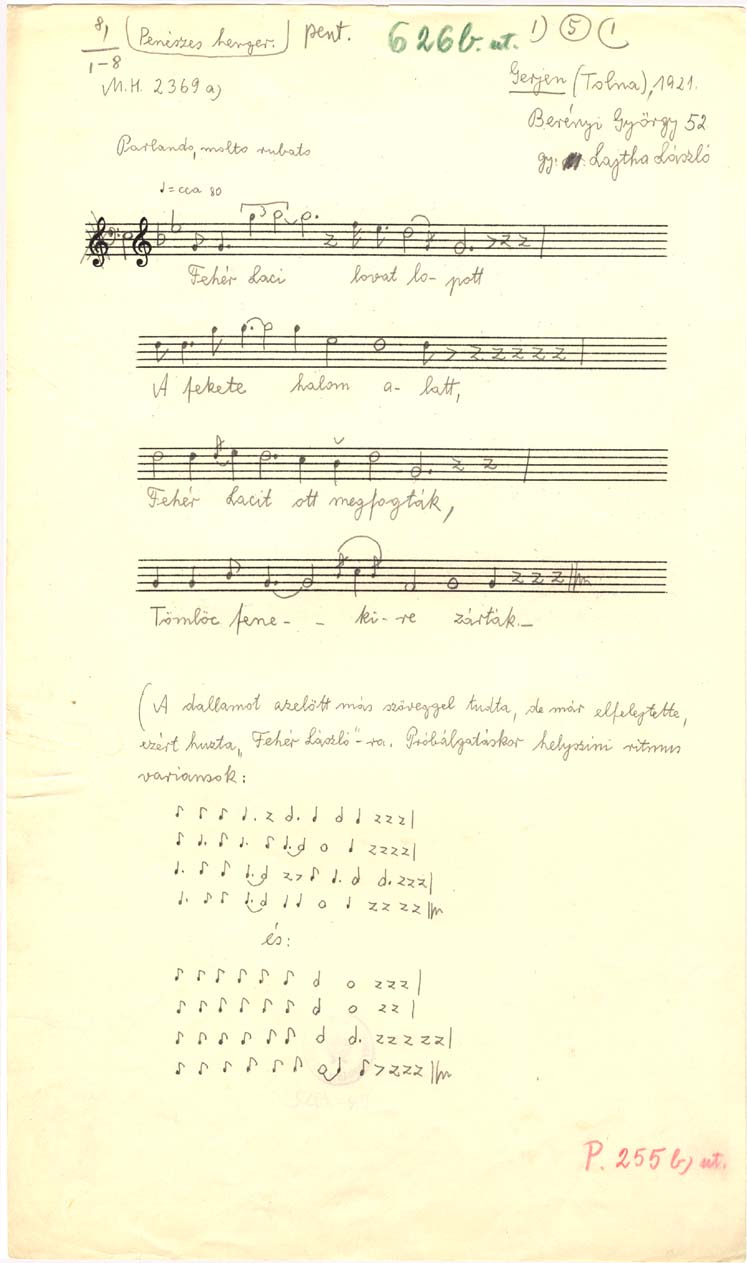 8, (Penészes henger.) pent. 626 b. ut. 1) 5 (1
1-8
M.H. 2369 a)
Gerjen (Tolna), 1921.
Berényi György 52
gy: Lajtha László
Parlando, molto rubato
♩= cca 80
Fehér Laci lovat lo- pott
A fekete halom a- latt,
Fehér Lacit ott megfogták,
Tömlöc fene- - ki- re zárták.
(A dallamot azelőtt más szöveggel tudta, de már elfelejtette,
ezért huzta „Fehér László"-ra. Próbálgatáskor helyszini ritmus
variansok:
és:
P. 255 b) ut.